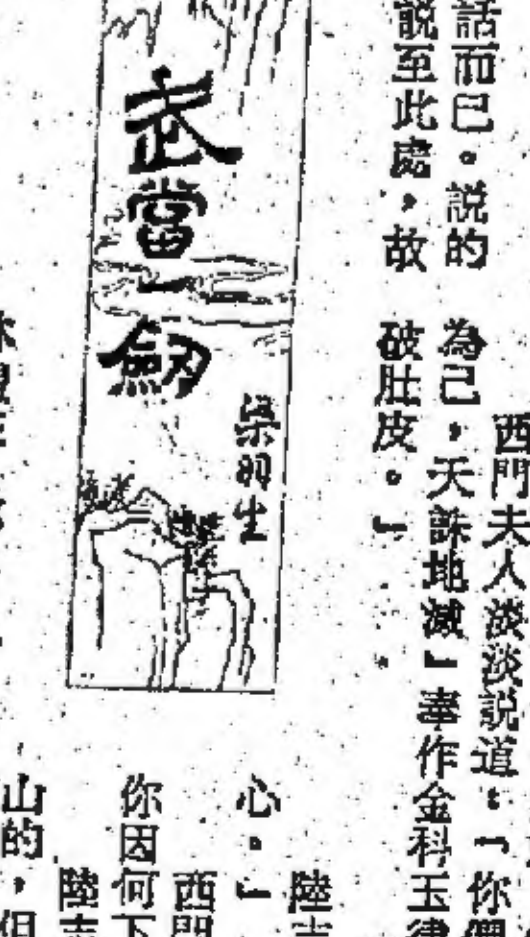 話而已。説的
説至此處,故
西門夫人淡淡説道:「你們
為己,天誅地滅」奉作金科玉律
破肚皮。」
武當一劍
梁羽生
陸志
心。」
西門
你因何下
陸志
山的,但